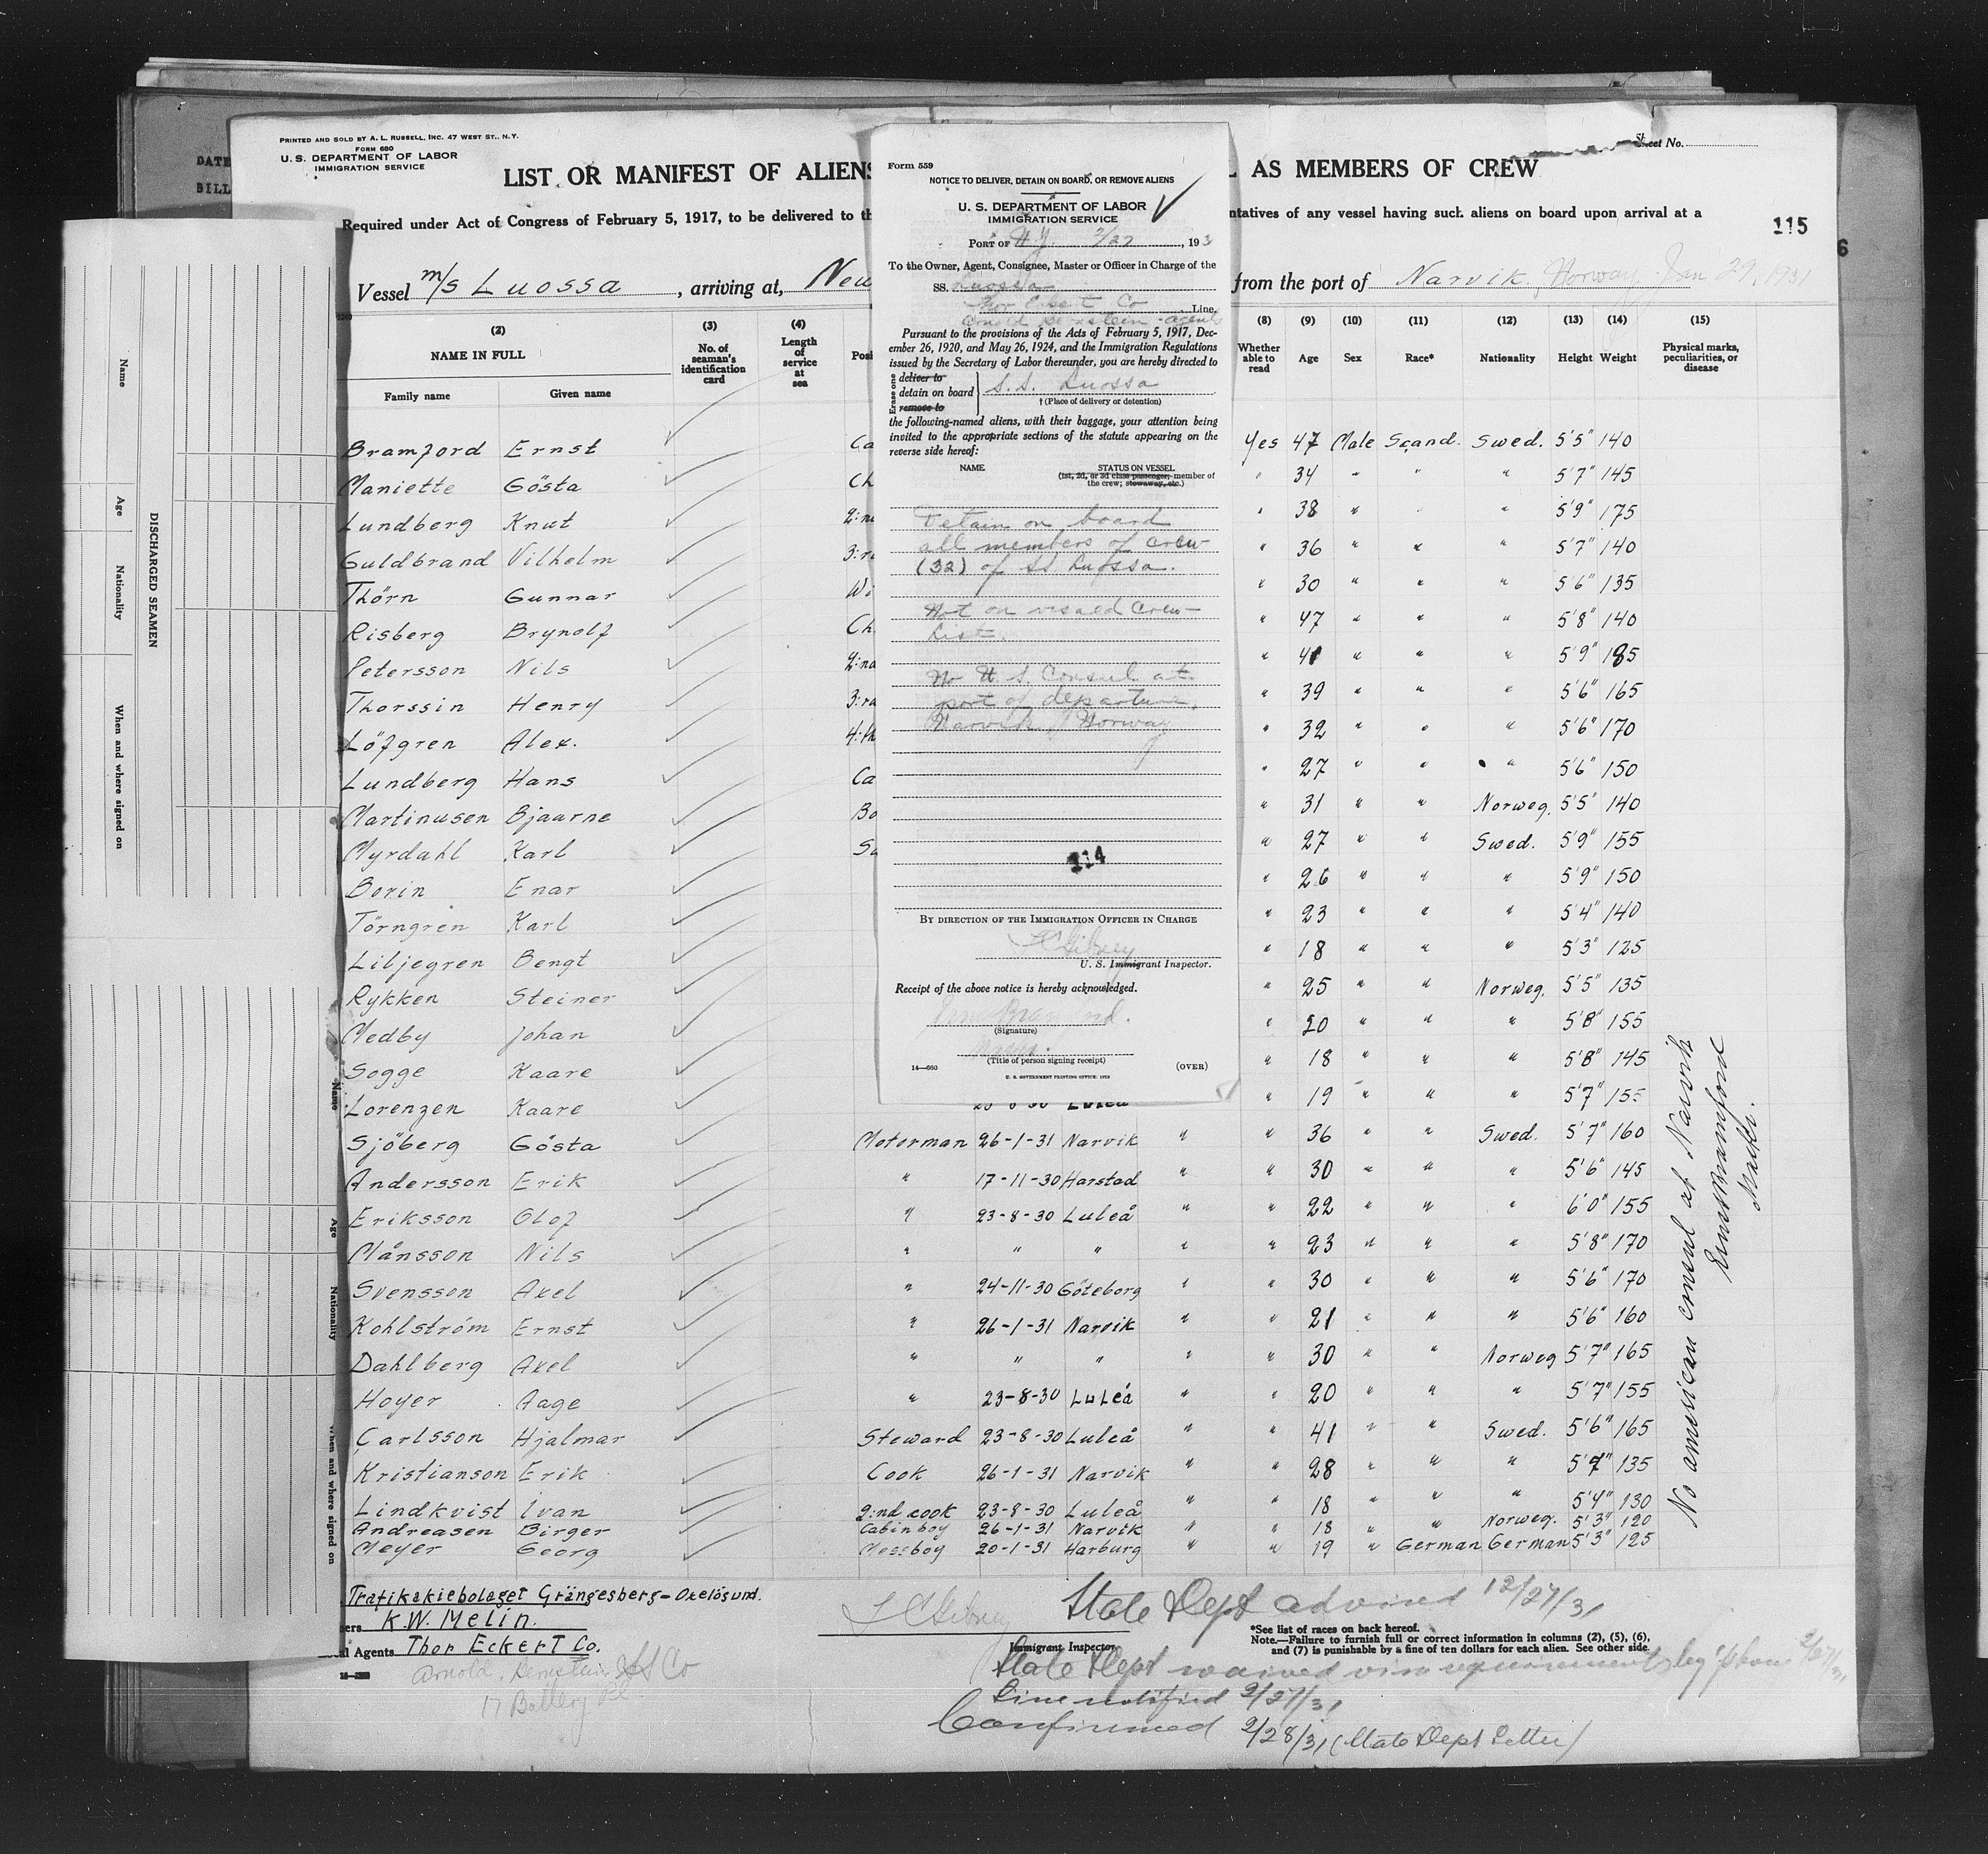 PRINTED AND SOLD BY A. L. RUSSELL, INC. 47 WEST ST., N.Y.
FORM 680
U. S. DEPARTMENT OF LABOR
IMMIGRATION SERVICE
DATE
BILL
Sheet No.
LIST OR MANIFEST OF ALIENS
L AS MEMBERS OF CREW
Required under Act of Congress of February 5, 1917, to be delivered to th
ntatives of any vessel having such aliens on board upon arrival at a
115
6
Vessel m/s Luossa, arriving at, New
from the port of Narvik. Norway, Jan 29, 1931
(2) (3) (4) (8) (9) (10) (11) (12) (13) (14) (15)
NAME IN FULL No. of seaman's identification card Length of service at sea Posi Whether able to read Age Sex Race* Nationality Height Weight Physical marks, peculiarities, or disease
Family name Given name
Bramford Ernst Ca Yes 47 Male Scand. Swed. 5'5" 140
Maniette Gösta Ch " 34 " " " 5'7" 145
Lundberg Knut 2:nd " 38 " " " 5'9" 175
Guldbrand Vilhelm 3:rd " 36 " " " 5'7" 140
Thörn Gunnar Wi " 30 " " " 5'6" 135
Risberg Brynolf Ch " 47 " " " 5'8" 140
Petersson Nils 2:nd " 41 " " " 5'9" 185
Thorssin Henry 3:rd " 39 " " " 5'6" 165
Löfgren Alex. 4:th " 32 " " " 5'6" 170
Lundberg Hans Ca " 27 " " " 5'6" 150
Martinusen Bjaarne Bo " 31 " " Norweg. 5'5" 140
Myrdahl Karl Se " 27 " " Swed. 5'9" 155
Borin Enar " 26 " " " 5'9" 150
Törngren Karl " 23 " " " 5'4" 140
Liljegren Bengt " 18 " " " 5'3" 125
Rykken Steiner " 25 " " Norweg. 5'5" 135
Medby Johan " 20 " " " 5'8" 155
Sogge Kaare " 18 " " " 5'8" 145
Lorenzen Kaare 23-8-30 Luleå " 19 " " " 5'7" 155
Sjöberg Gösta Motorman 26-1-31 Narvik " " 36 " " Swed. 5'7" 160
Andersson Erik " 17-11-30 Harstad " " 30 " " " 5'6" 145
Eriksson Olof " 23-8-30 Luleå " " 22 " " " 6'0" 155
Månsson Nils " " " " " 23 " " " 5'8" 170
Svensson Axel " 24-11-30 Göteborg " " 30 " " " 5'6" 170
Kohlström Ernst " 26-1-31 Narvik " " 21 " " " 5'6" 160
Dahlberg Axel " " " " " 30 " " Norweg 5'7" 165
Hoyer Aage " 23-8-30 Luleå " " 20 " " " 5'7" 155
Carlsson Hjalmar Steward 23-8-30 Luleå " " 41 " " Swed. 5'6" 165
Kristianson Erik Cook 26-1-31 Narvik " " 28 " " " 5'7" 135
Lindkvist Ivan 2:nd cook 23-8-30 Luleå " " 18 " " " 5'4" 130
Andreasen Birger Cabinboy 26-1-31 Narvik " " 18 " " Norweg. 5'3" 120
Meyer Georg Messboy 20-1-31 Harburg " " 19 " German German 5'3" 125
No american consul at Narvik
Ernst Bramford
Master.
Trafikakiebolaget Grängesberg-Oxelösund.
ers K.W. Melin.
al Agents Thor Eckert Co.
Arnold Bernstein SS Co
17 Battery Pl
Immigrant Inspector
*See list of races on back hereof.
Note.—Failure to furnish full or correct information in columns (2), (5), (6),
and (7) is punishable by a fine of ten dollars for each alien. See other side.
State Dept advised 12/27/31
State Dept waived visa requirements by 'phone 2/27/31
Line notified 2/27/31
Confirmed 2/28/31 (State Dept Letter)
Form 559
NOTICE TO DELIVER, DETAIN ON BOARD, OR REMOVE ALIENS
U. S. DEPARTMENT OF LABOR
IMMIGRATION SERVICE
PORT OF N.Y. 2/27, 193
To the Owner, Agent, Consignee, Master or Officer in Charge of the
SS. Luossa
Thor Eckert Co Line,
Arnold Bernstein - agents
Pursuant to the provisions of the Acts of February 5, 1917, Dec-
ember 26, 1920, and May 26, 1924, and the Immigration Regulations
issued by the Secretary of Labor thereunder, you are hereby directed to
Erase one
deliver to
detain on board
remove to
S.S. Luossa
† (Place of delivery or detention)
the following-named aliens, with their baggage, your attention being
invited to the appropriate sections of the statute appearing on the
reverse side hereof:
NAME STATUS ON VESSEL
(1st, 2d, or 3d class passenger, member of
the crew; stowaway, etc.)
Detain on board
all members of crew
(32) of SS Luossa.
Not on visaed crew
list.
No U.S. Consul at
port of departure,
Narvik, Norway
114
BY DIRECTION OF THE IMMIGRATION OFFICER IN CHARGE
U. S. Immigrant Inspector.
Receipt of the above notice is hereby acknowledged.
Ernst Bramford.
(Signature)
Master.
(Title of person signing receipt)
14—660
(OVER)
U. S. GOVERNMENT PRINTING OFFICE: 1929
DISCHARGED SEAMEN
Name
Age
Nationality
When and where signed on
Name
Age
Nationality
When and where signed on